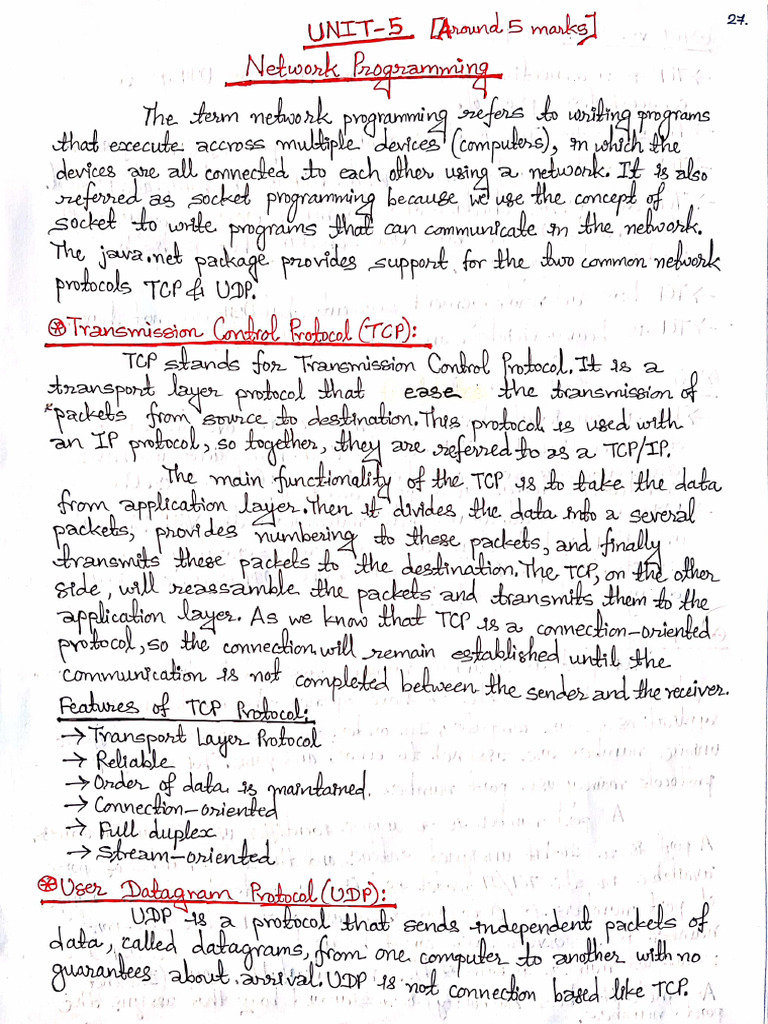 27.
UNIT-5 [Around 5 marks]
Network Programming
The term network programming refers to writing programs
that execute accross multiple devices (computers), in which the
devices are all connected to each other using a network. It is also
referred as socket programming because we use the concept of
socket to write programs that can communicate in the network.
The java.net package provides support for the two common network
protocols TCP & UDP.
⊛ Transmission Control Protocol (TCP):
TCP stands for Transmission Control Protocol. It is a
transport layer protocol that ease the transmission of
packets from source to destination. This protocol is used with
an IP protocol, so together, they are referred to as a TCP/IP.
The main functionality of the TCP is to take the data
from application layer. Then it divides the data into a several
packets, provides numbering to these packets, and finally
transmits these packets to the destination. The TCP, on the other
side, will reassamble the packets and transmits them to the
application layer. As we know that TCP is a connection-oriented
protocol, so the connection will remain established until the
communication is not completed between the sender and the receiver.
Features of TCP Protocol:
→ Transport Layer Protocol
→ Reliable
→ Order of data is maintained.
→ Connection-oriented
→ Full duplex
→ Stream-oriented
⊛ User Datagram Protocol (UDP):
UDP is a protocol that sends independent packets of
data, called datagrams, from one computer to another with no
guarantees about arrival. UDP is not connection based like TCP.